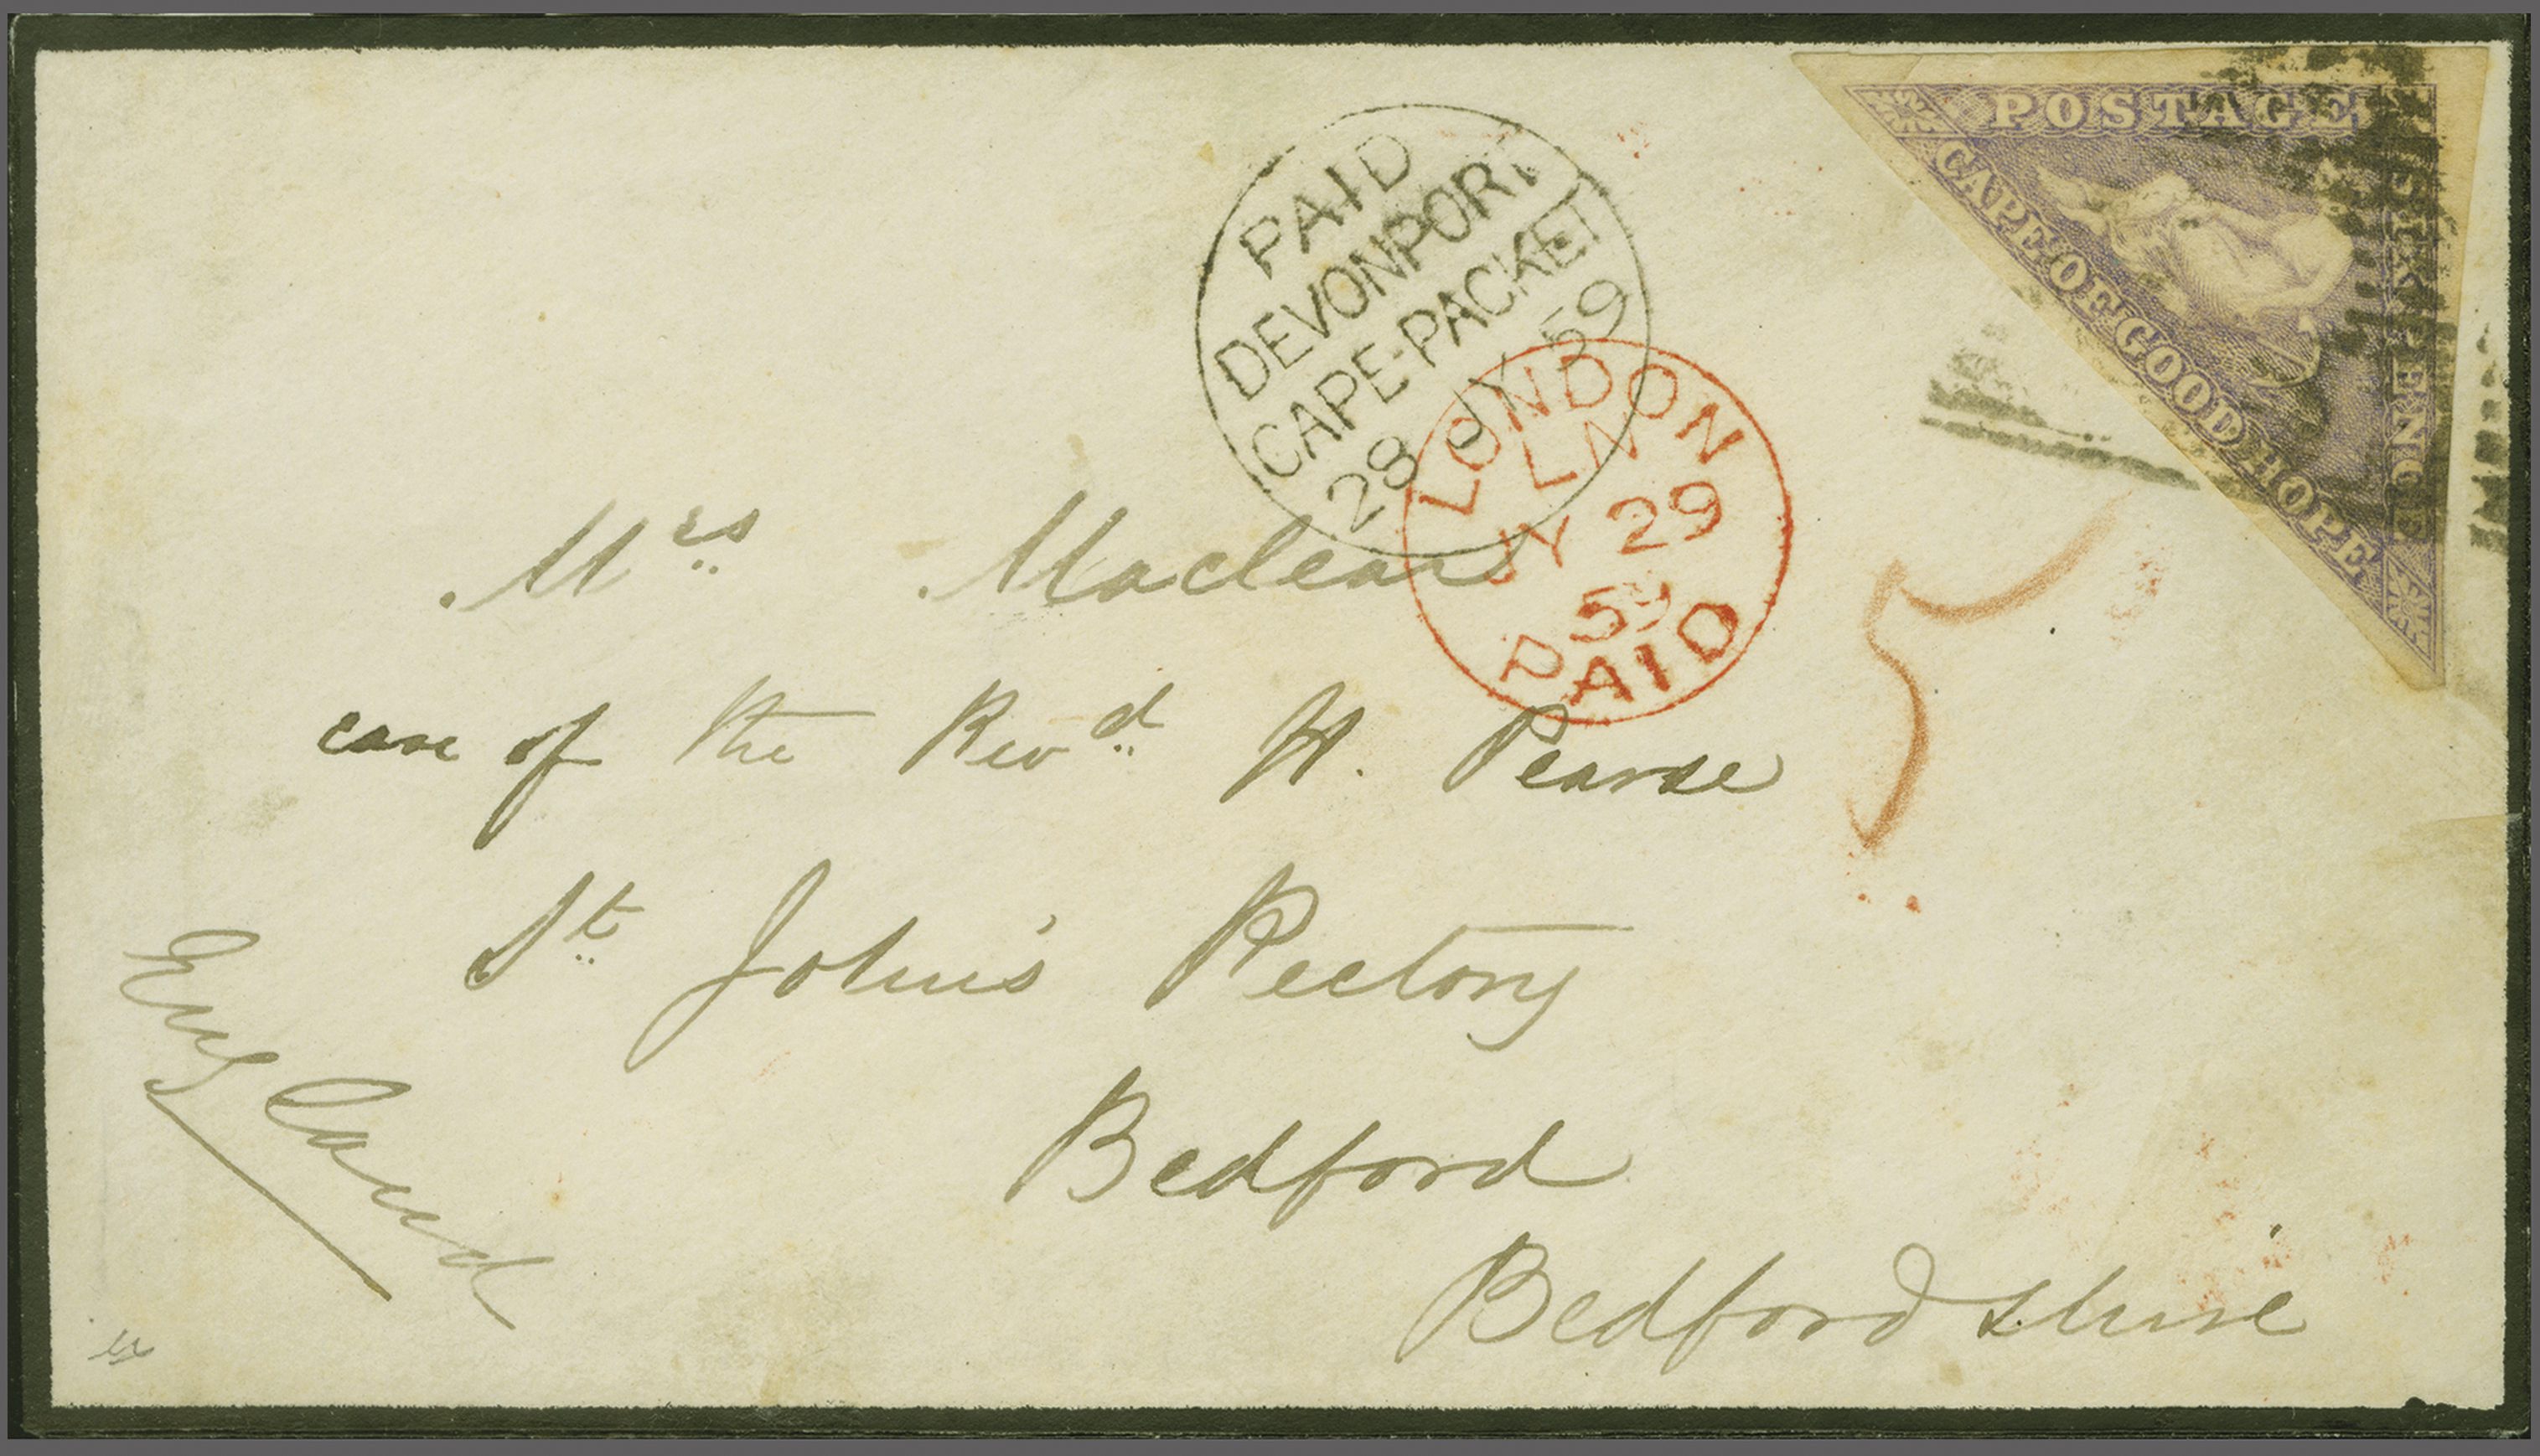 POSTAGE
SIX PENCE
CAPE OF GOOD HOPE
PAID
DEVONPORT
CAPE-PACKET
28 JY 59
LONDON
LN
JY 29
59
PAID
5
Mrs Maclear
care of the Revd H. Pearse
St John's Rectory
Bedford
Bedfordshire
England